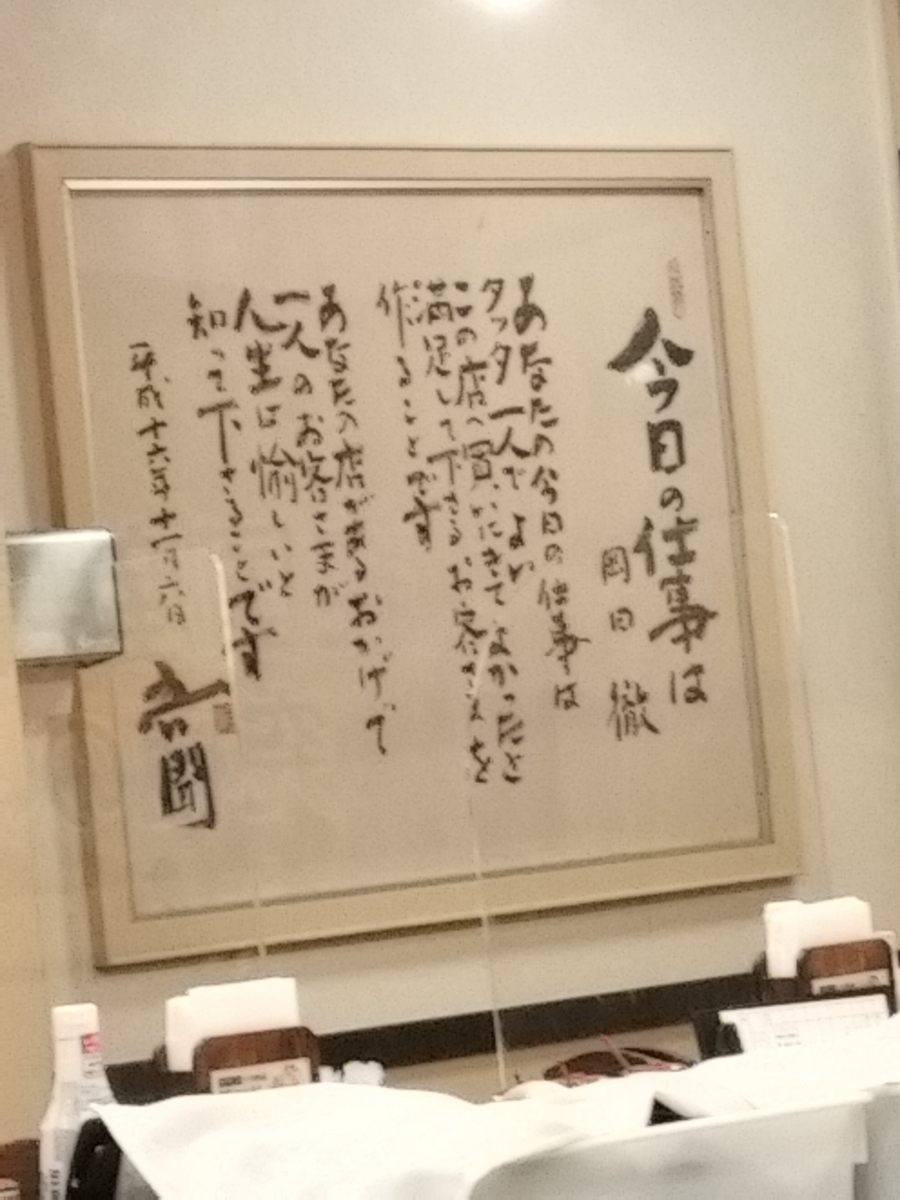 今日の仕事は
岡田 徹
あなたの今日の仕事は
タッタ一人でよい
この店へ買いにきてよかったと
満足して下さるお客さまを
作ることです
あなたの店があるおかげで
一人のお客さまが
人生は愉しいと
知って下さることです
平成十六年十一月六日